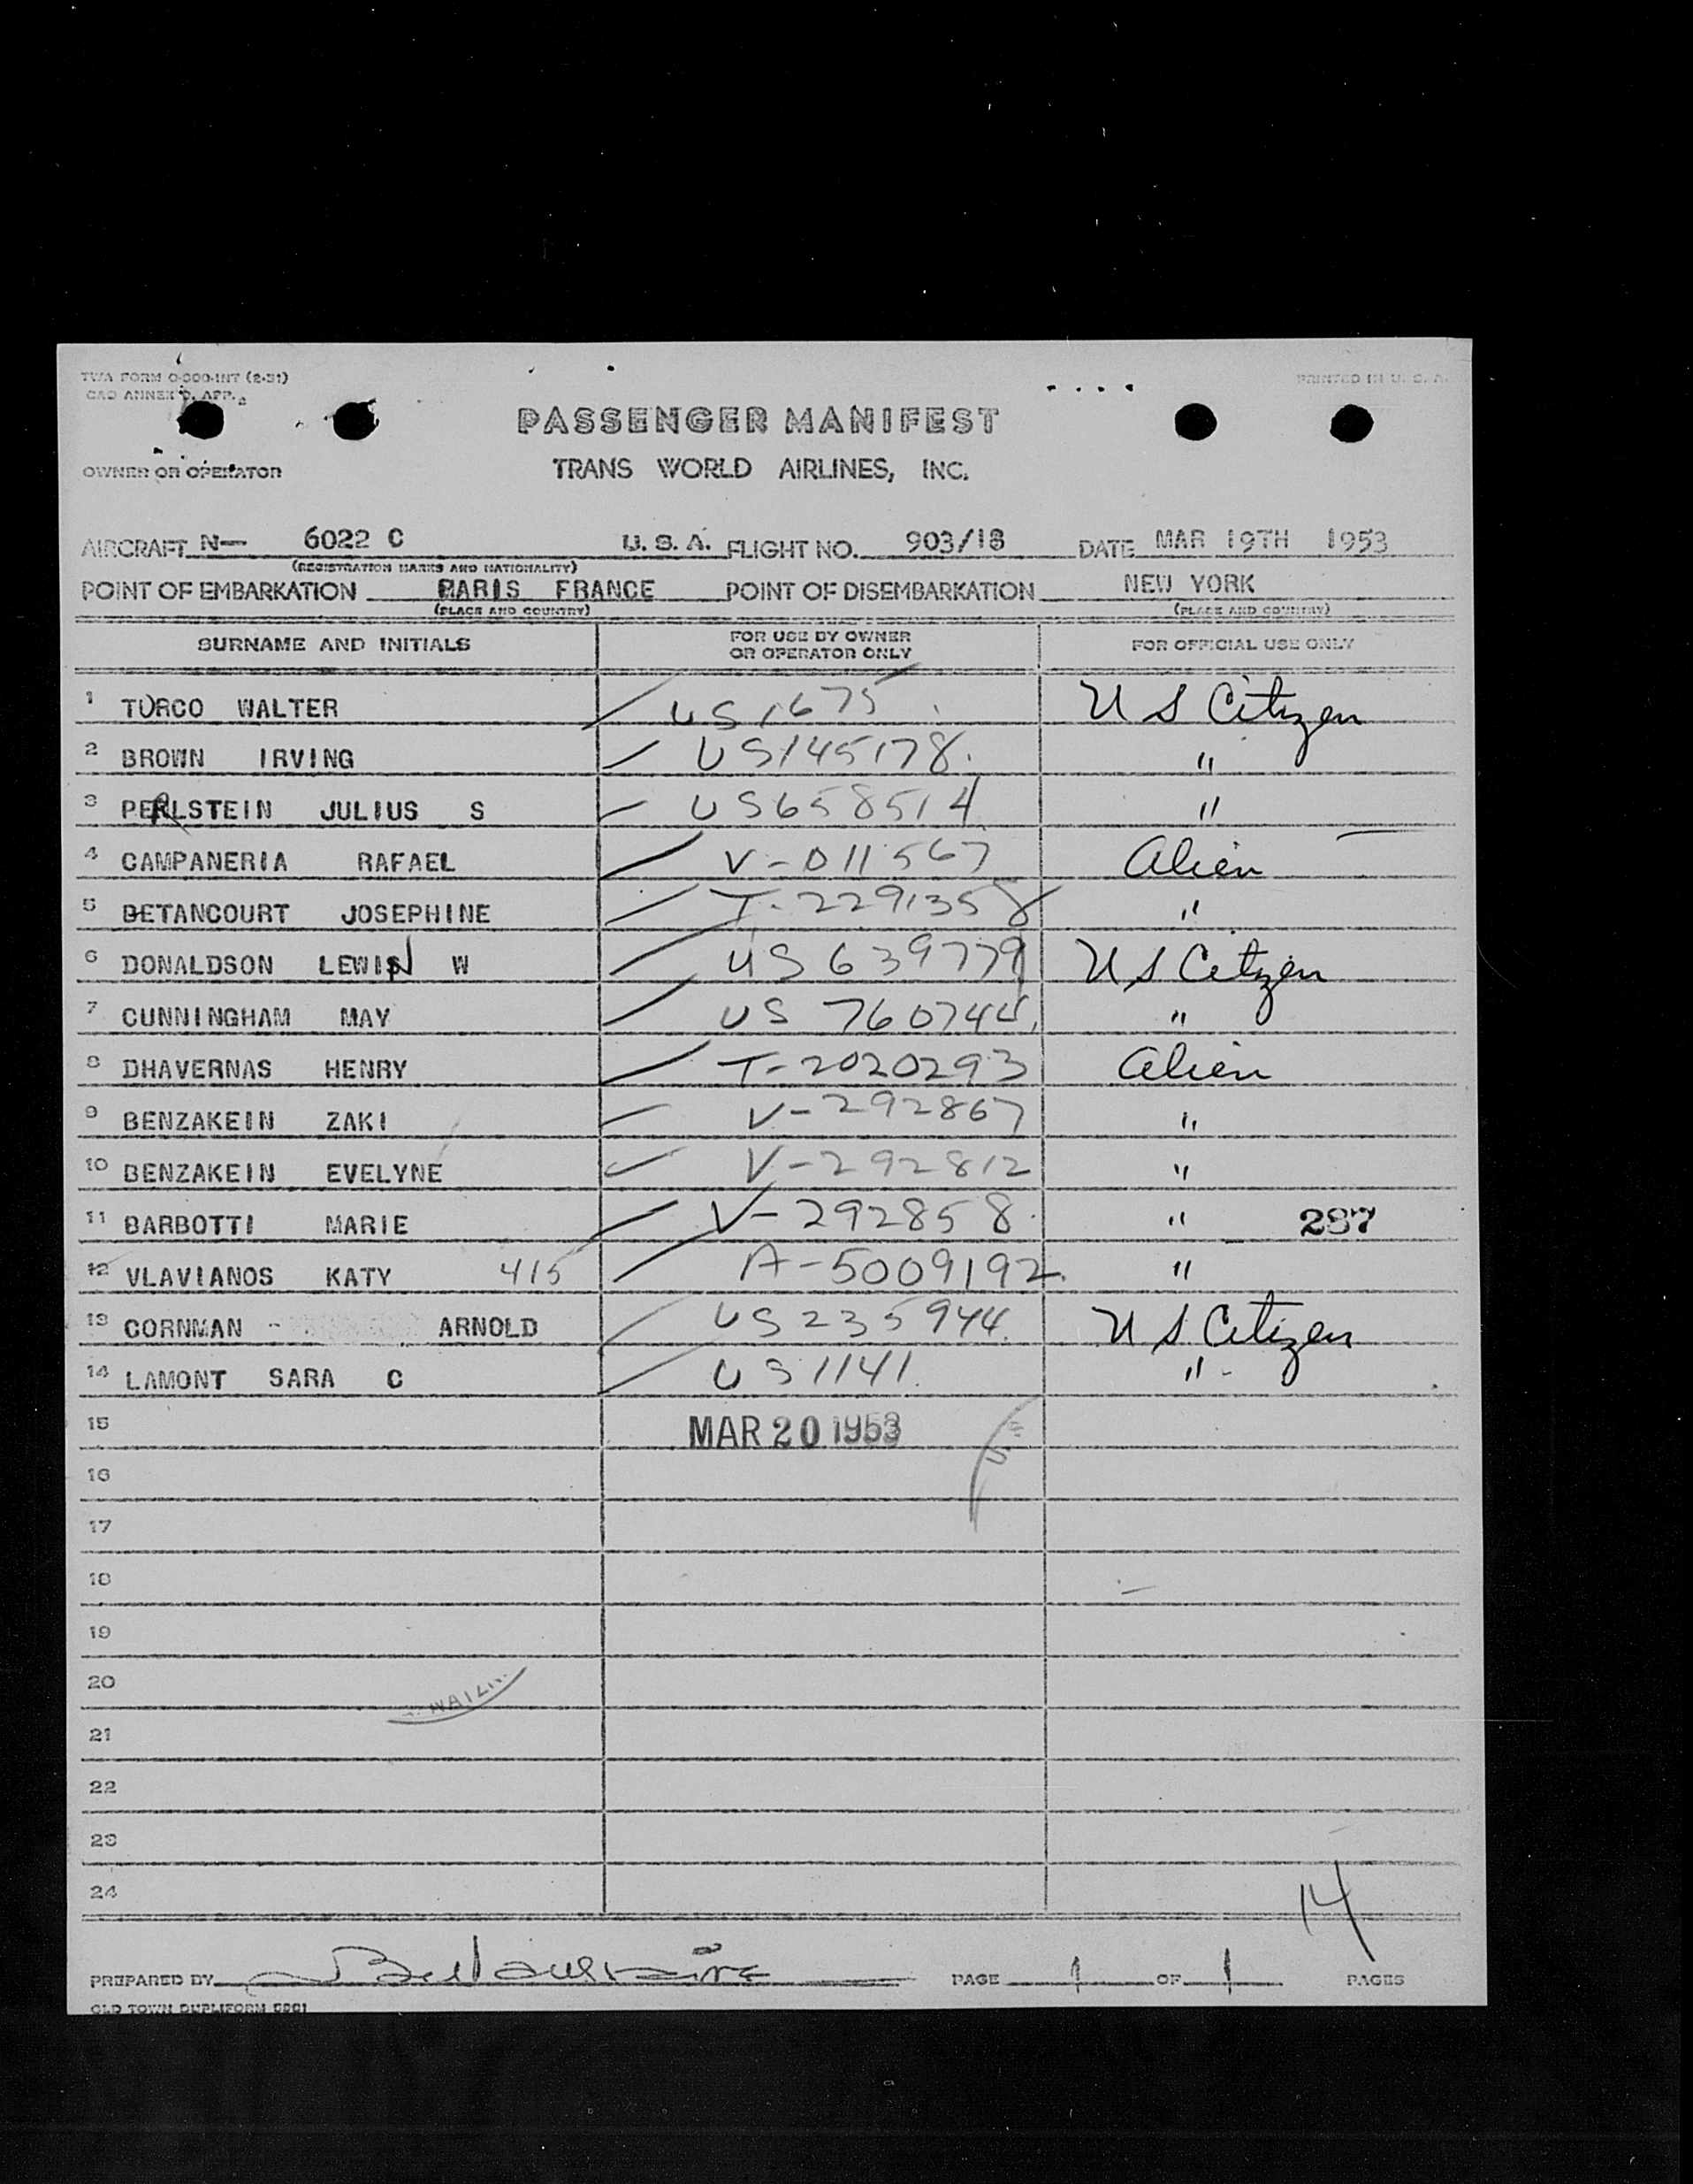 TWA FORM O-300-INT (2-51)
PRINTED IN U. S. A.
CAO ANNEX 9, APP.
PASSENGER MANIFEST
OWNER OR OPERATOR TRANS WORLD AIRLINES, INC.
AIRCRAFT N— 6022 C U. S. A. FLIGHT NO. 903/18 DATE MAR 19TH 1953
(REGISTRATION MARKS AND NATIONALITY)
POINT OF EMBARKATION PARIS FRANCE POINT OF DISEMBARKATION NEW YORK
(PLACE AND COUNTRY) (PLACE AND COUNTRY)
SURNAME AND INITIALS FOR USE BY OWNER OR OPERATOR ONLY FOR OFFICIAL USE ONLY
1 TURCO WALTER US 1675 U S Citizen
2 BROWN IRVING US145178. "
3 PERLSTEIN JULIUS S US658514 "
4 CAMPANERIA RAFAEL V-011567 Alien
5 BETANCOURT JOSEPHINE T-2291358 "
6 DONALDSON LEWIN W US 639779 U S Citizen
7 CUNNINGHAM MAY US 760744 "
8 DHAVERNAS HENRY T-2020293 Alien
9 BENZAKEIN ZAKI V-292867 "
10 BENZAKEIN EVELYNE V-292812 "
11 BARBOTTI MARIE V-292858 " 287
12 VLAVIANOS KATY 415 A-5009192 "
13 CORNMAN ARNOLD US 235944 U S Citizen
14 LAMONT SARA C US 1141 "
15 MAR 20 1953
16
17
18
19
20
21
22
23
24
14
PREPARED BY PAGE 1 OF 1 PAGES
OLD TOWN DUPLIFORM